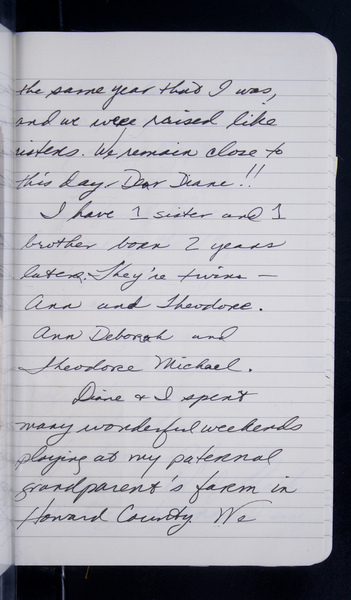 the same year that I was,
and we were raised like
sisters. We remain close to
this day, Dear Diane!!
I have 1 sister and 1
brother born 2 years
later. They're twins —
Ann and Theodore.
Ann Deborah and
Theodore Michael.
Diane & I spent
many wonderful weekends
playing at my paternal
grandparent's farm in
Howard County. We